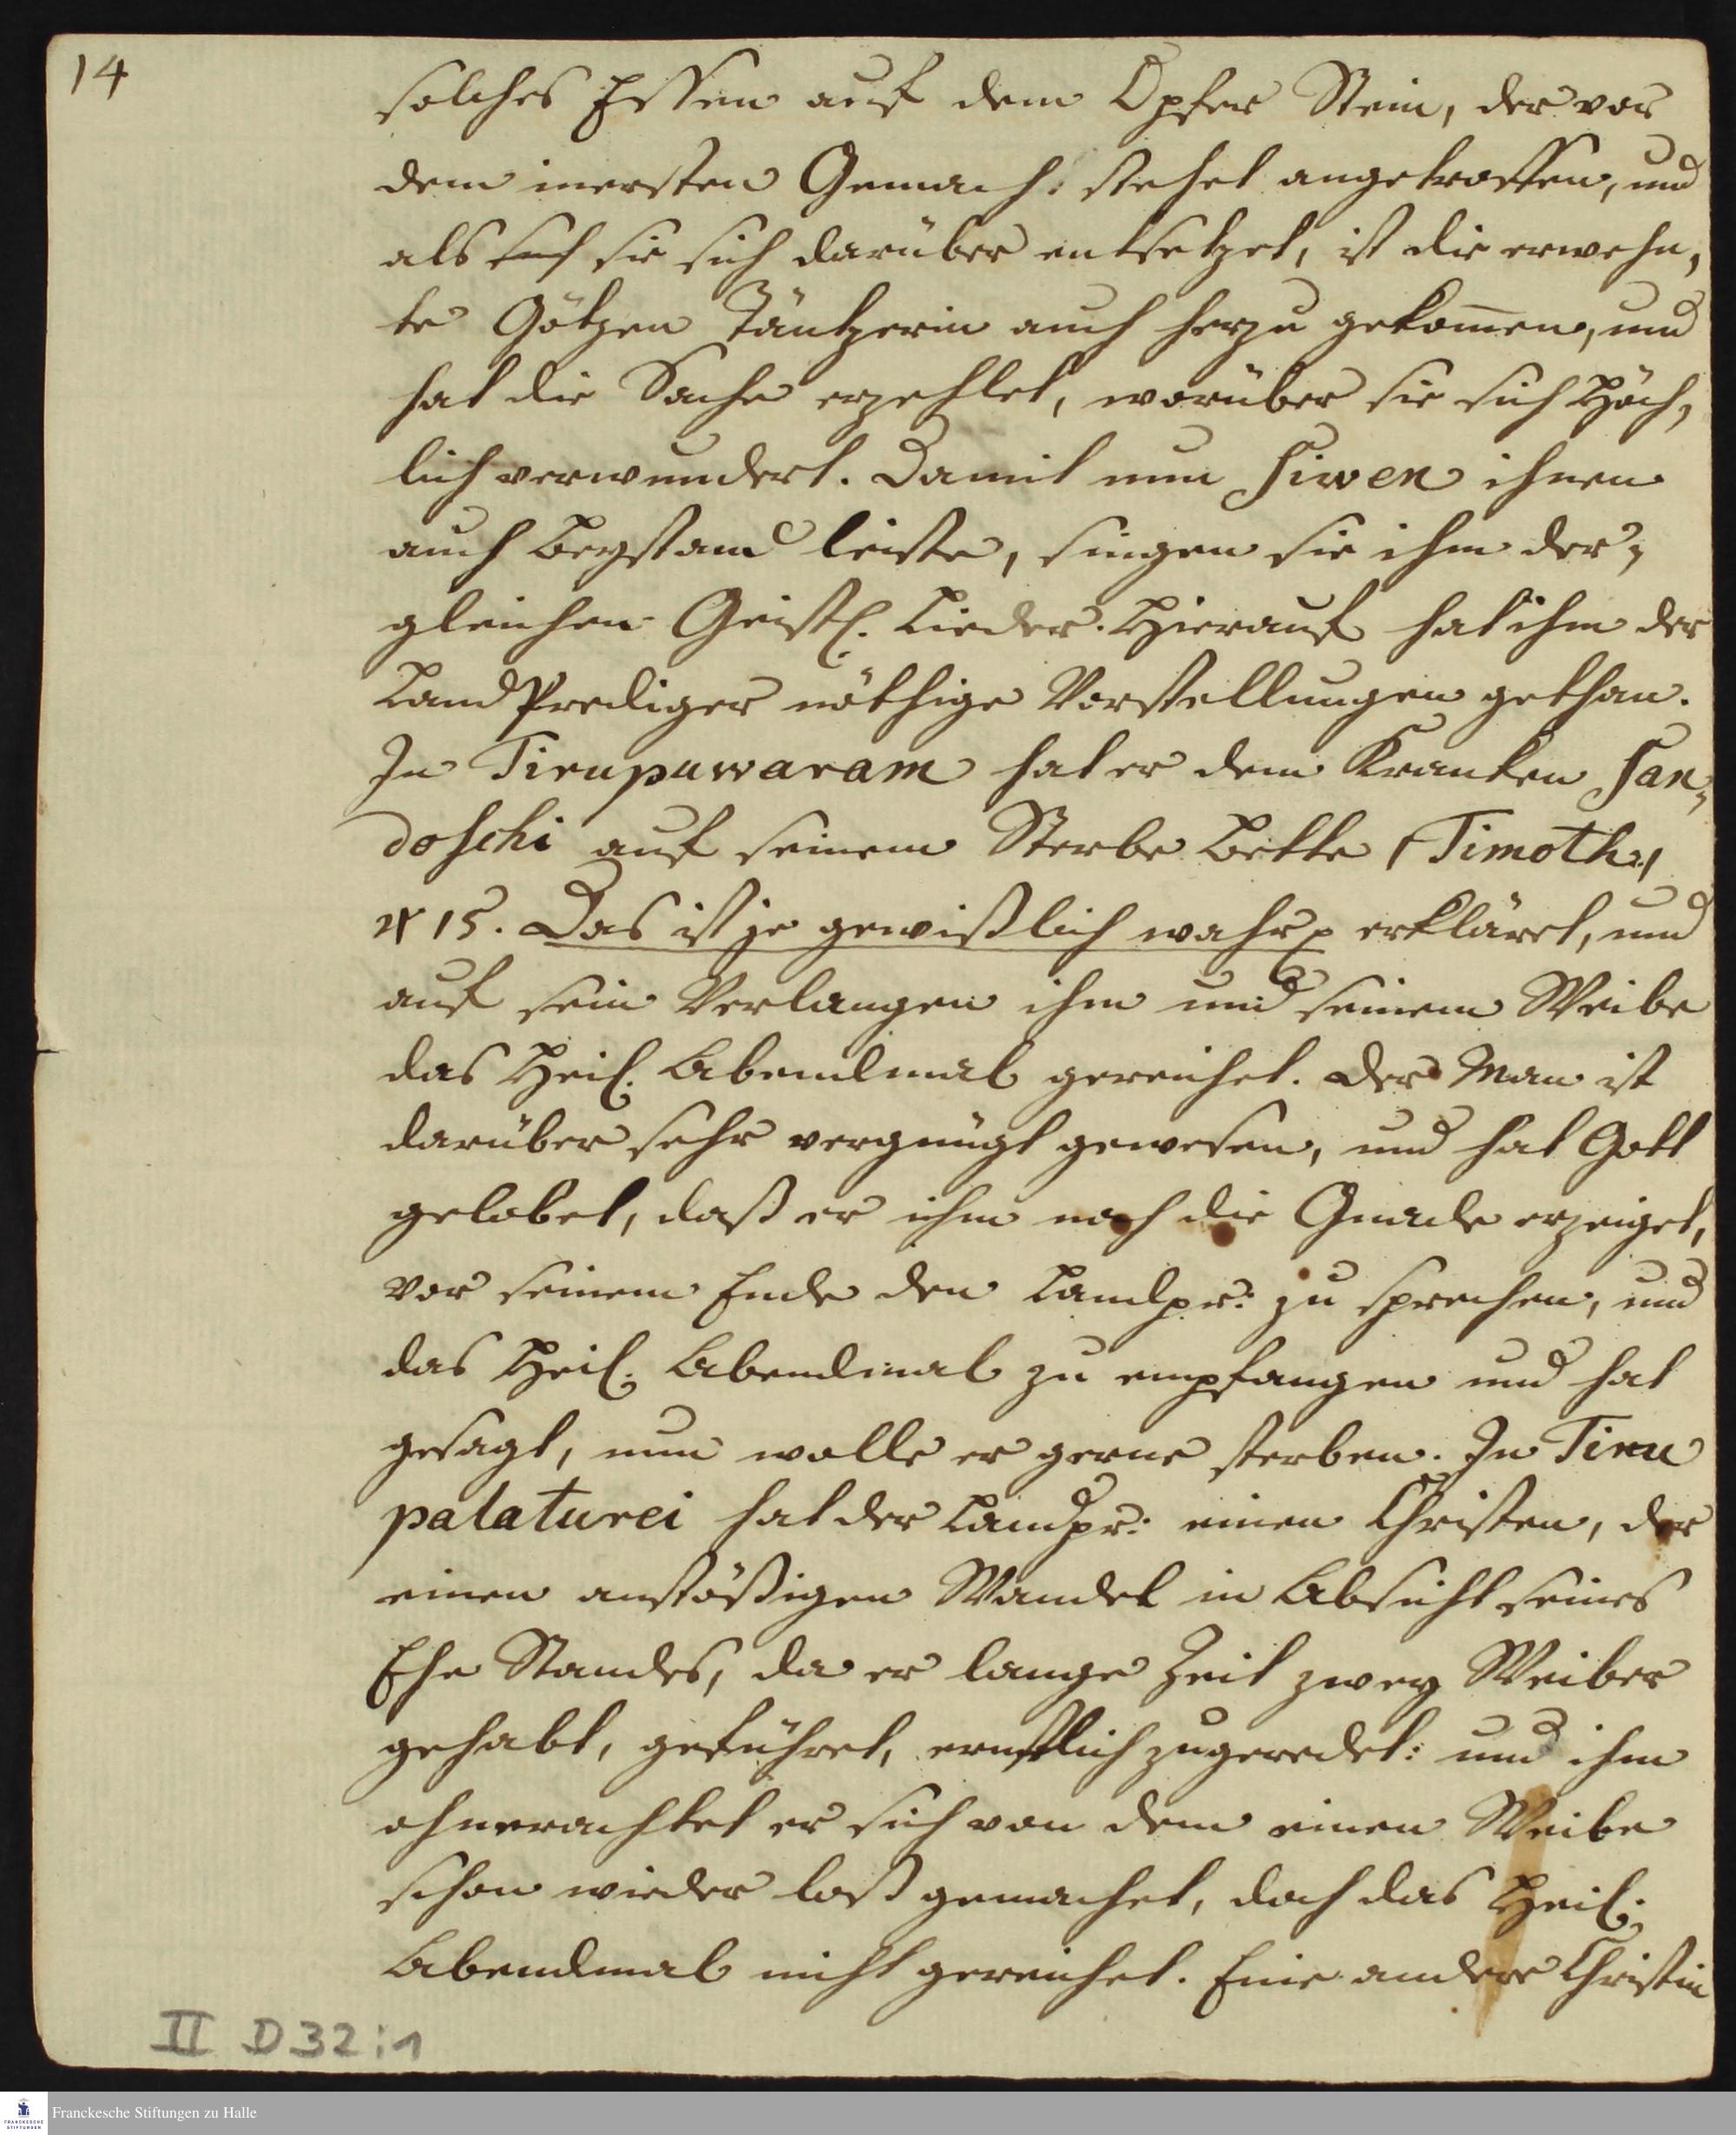 14
solches Essen auf dem Opfer Stein, der vor
dem innersten Gemach: stehet angetroffen, und
als sie sich darüber entsetzet, ist die erwehn,
te Götzen Täntzerin auch herzu gekom̄en, und
hat die Sache erzehlet, worüber sie sich Höch,
lich verwundert. Damit nun Siwen ihnen
auch Beystand leiste, singen sie ihm der,
gleichen Geistl. Lieder. Hierauf hat ihm der
LandPrediger nöthige Vorstellungen gethan.
In Tirupuwaram hat er dem Krancken San,
doschi auf seinem Sterbe Bette 1 Timoth. 1
v 15. Das ist je gewißlich wahr p erkläret, und
auf sein Verlangen ihm und seinem Weibe
das Heil. Abendmal gereichet. Der Man ist
darüber sehr vergnügt gewesen, und hat Gott
gelobet, daß er ihm noch die Gnade erzeiget,
vor seinem Ende den Landpr: zu sprechen, und
das Heil. Abendmal zu empfangen und hat
gesagt, nun wolle er gerne sterben. In Tiru
palaturei hat der Landpr: einen Christen, der
einen anstößigen Wandel in Absicht seines
Ehe Standes, da er lange Zeit zwey Weiber
gehabt, geführet, ernstlich zugeredet: und ihm
ohnerachtet er sich von dem einen Weibe
schon wieder loß gemachet, doch das Heil.
Abendmal nicht gereichet. Eine andere Christin
II D 32:1
Franckesche Stiftungen zu Halle